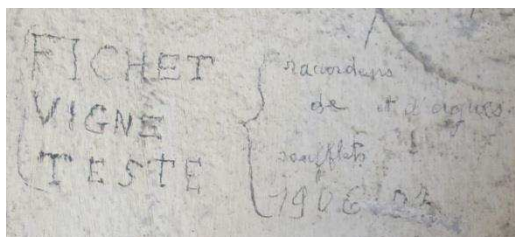 FICHET
VIGNE
TESTE
racordeurs
de
soufflets
1906